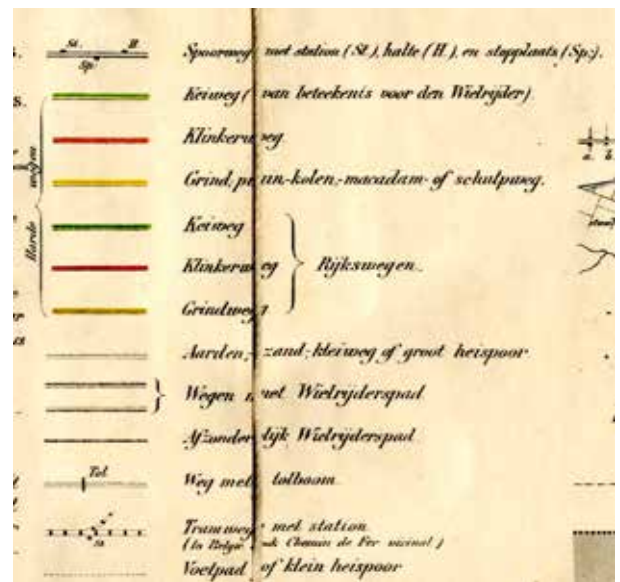 St. H.
Sp.
Spoorweg met station (St.), halte (H.), en stopplaats (Sp.).
Keiweg ( van beteekenis voor den Wielrijder)
Klinkerweg
Grind, puin-kolen,-macadam- of schulpweg.
Harde wegen
Keiweg
Klinkerweg
Grindweg
Rijkswegen.
Aarden,-zand,-kleiweg of groot heispoor
Wegen met Wielrijderspad
Afzonderlijk Wielrijderspad
Tol
Weg met tolboom.
Tramweg met station
(In België ook Chemin de Fer vicinal)
St.
Voetpad of klein heispoor
a. b.